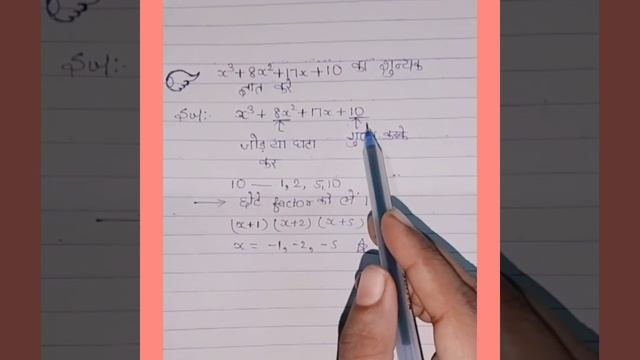 x³ + 8x² + 17x + 10 का शुन्यक
ज्ञात करें
Sol:-
Sol:- x³ + 8x² + 17x + 10
जोड़ या घटा
कर
करके
10 — 1, 2, 5, 10
→ छोटे factor को लें।
(x+1) (x+2) (x+5)
x = -1, -2, -5